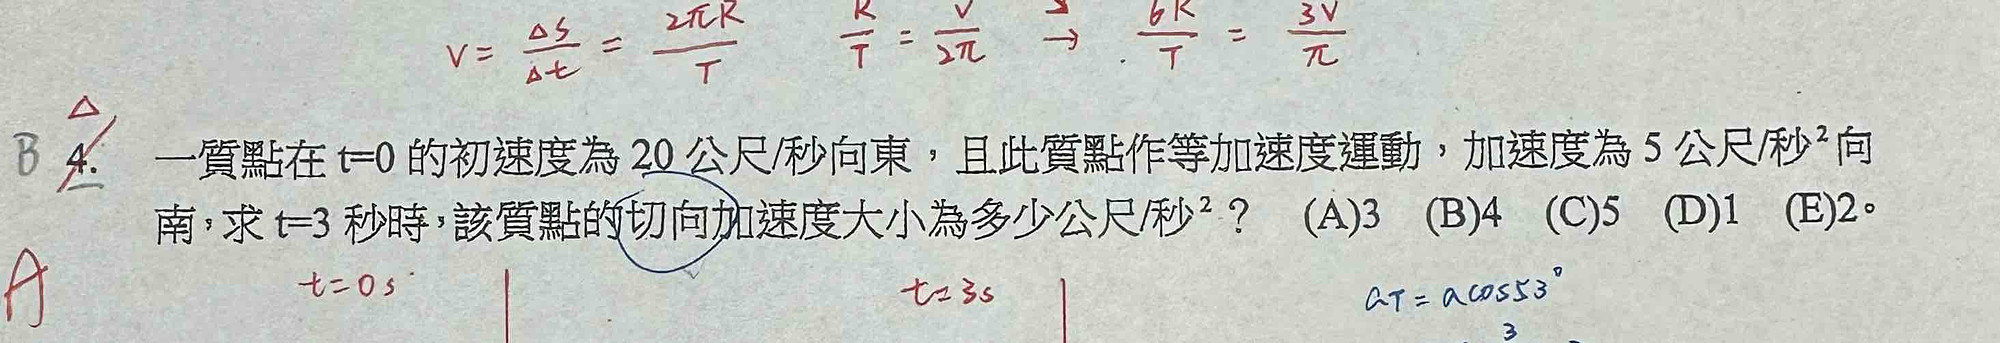 V = Δs/Δt = 2πR/T R/T = V/2π → 6R/T = 3V/π
Δ
B 4. 一質點在 t=0 的初速度為 20 公尺/秒向東，且此質點作等加速度運動，加速度為 5 公尺/秒²向
南，求 t=3 秒時，該質點的切向加速度大小為多少公尺/秒²？ (A)3 (B)4 (C)5 (D)1 (E)2。
A t=0s t=3s aT = a cos53°
3